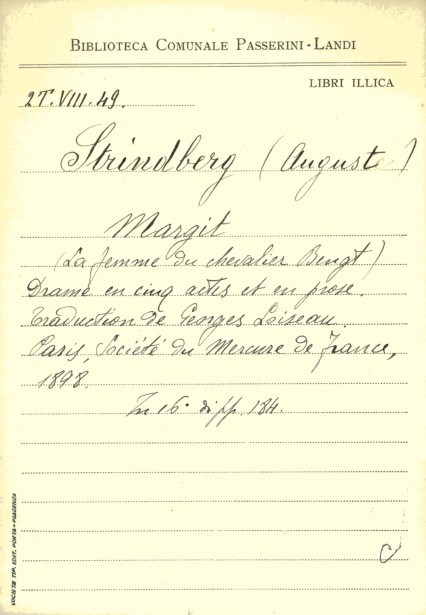 BIBLIOTECA COMUNALE PASSERINI-LANDI
LIBRI ILLICA
2T.VIII.49.
Strindberg (August)
Margit
(La femme du chevalier Bengt)
Drame en cinq actes et en prose.
Traduction de Georges Loiseau
Paris, Société du Mercure de France,
1898.
In 16° di pp. 184.
SOCIETÀ TIP. EDIT. PORTA - PIACENZA